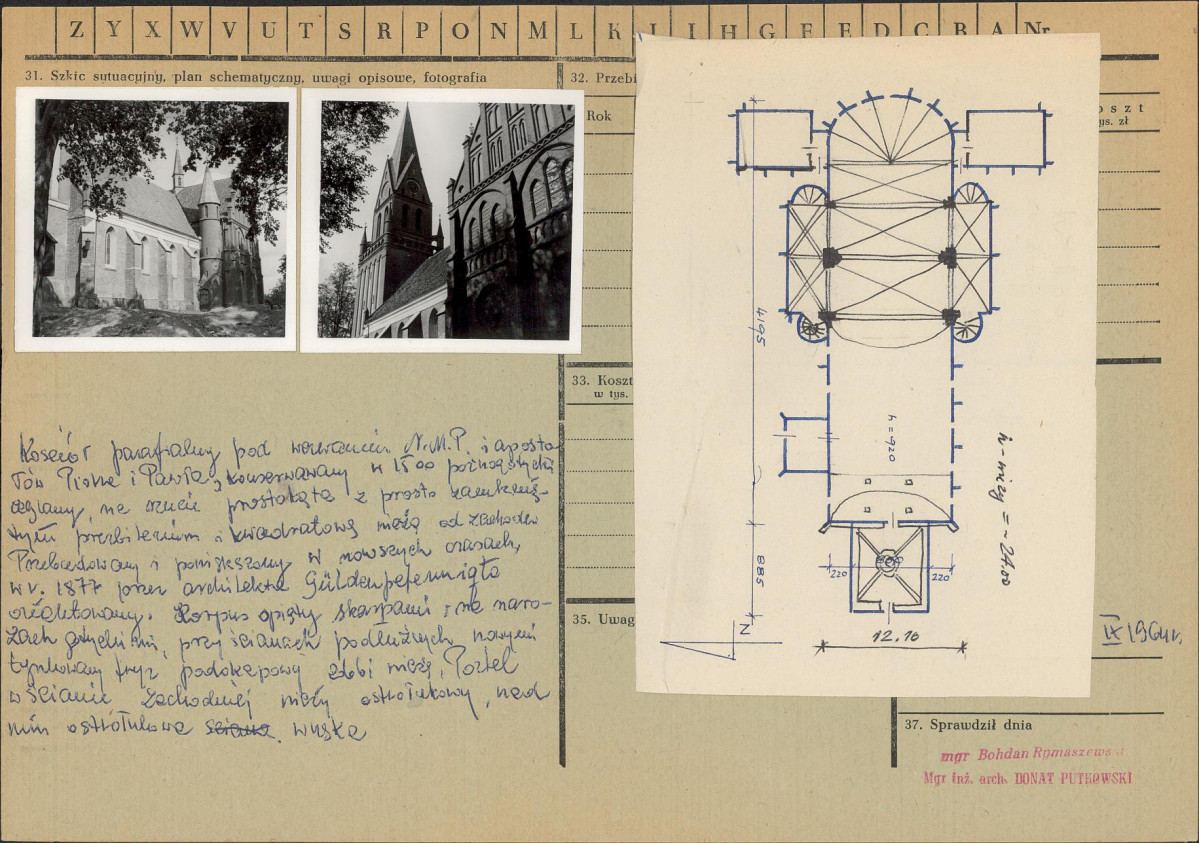 Z Y X W V U T S R P O N M L K J I H G F E D C B A Nr
31. Szkic sytuacyjny, plan schematyczny, uwagi opisowe, fotografia
32. Przebi
Rok
oszt
ys. zł
33. Koszt
w tys.
35. Uwag
IX 1964r.
37. Sprawdził dnia
mgr Bohdan Rymaszewski
Mgr inż. arch. DONAT PUTKOWSKI
Kościół parafialny pod wezwaniem N.M.P. i aposto
łów Piotra i Pawła, konserwowany w 1500 późnogotycki
ceglany, na rzucie prostokąta z prosto zamknię-
tym prezbiterium i kwadratową wieżą od zachodu
Przebudowany i powiększony w nowszych czasach,
w r. 1877 przez architekta Güldenpfenniga
Korpus opięty skarpami i na naro-
żach przy ścianach podłużnych, nowymi
tynkowany fryz podokapowy zdobi wieżę, Portal
w ścianie zachodniej wieży ostrołukowy, nad
nim ostrołukowa wnęka
4195
885
h = 920
h - wieży = ~ 24.00
220
220
12.10
N